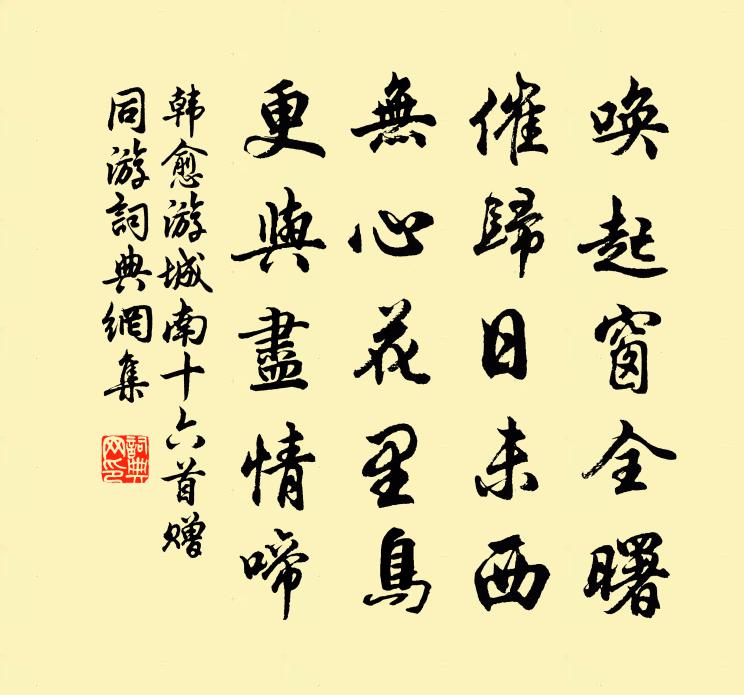 喚起窗全曙
催歸日未西
無心花里鳥
更與盡情啼
韩愈游城南十六首赠
同游詞典網集
詞典网印